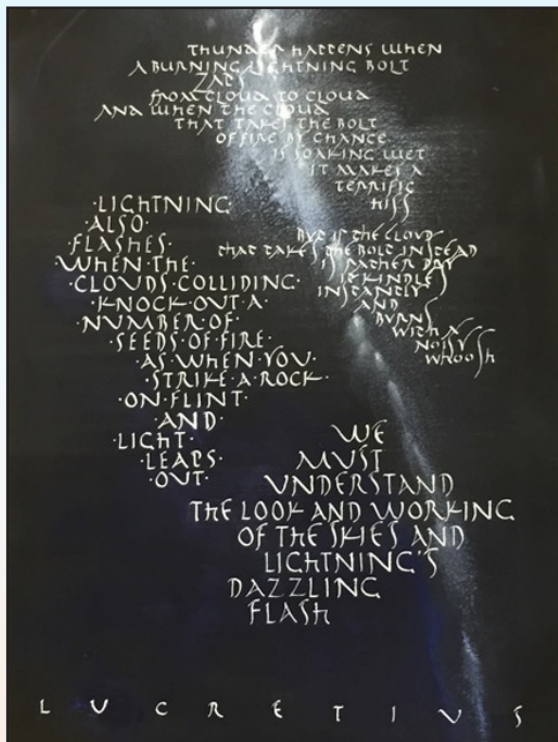 THUNDER HAPPENS WHEN
A BURNING LIGHTNING BOLT
ZAPS
FROM CLOUD TO CLOUD
AND WHEN THE CLOUD
THAT TAKES THE BOLT
OF FIRE BY CHANCE
IS SOAKING WET
IT MAKES A
TERRIFIC
HISS
BUT IF THE CLOUD
THAT TAKES THE BOLT INSTEAD
IS RATHER DRY
IT KINDLES
INSTANTLY
AND
BURNS
WITH A
NOISY
WHOOSH
·LIGHTNING·
·ALSO·
·FLASHES·
WHEN·THE·
·CLOUDS·COLLIDING·
·KNOCK·OUT·A·
·NUMBER·OF·
·SEEDS·OF·FIRE·
·AS·WHEN·YOU·
·STRIKE·A·ROCK·
·ON·FLINT·
·AND·
·LIGHT·
·LEAPS·
·OUT·
WE
MUST
UNDERSTAND
THE LOOK AND WORKING
OF THE SKIES AND
LIGHTNING'S
DAZZLING
FLASH
LUCRETIUS